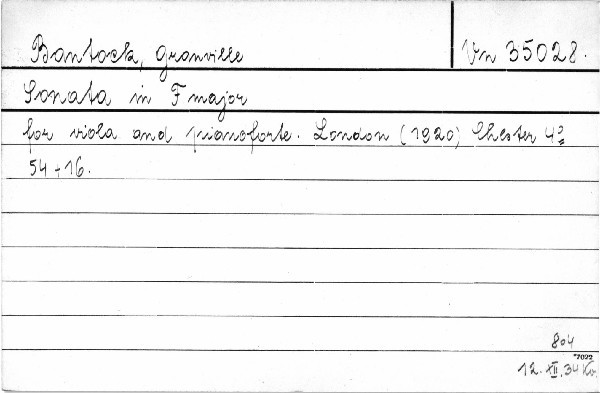 Bantock, Granville
Vn 35028.
Sonata in F major
for viola and pianoforte. London (1920) Chester 4º
54 + 16.
804
*7022
12. XII. 34 Kv.